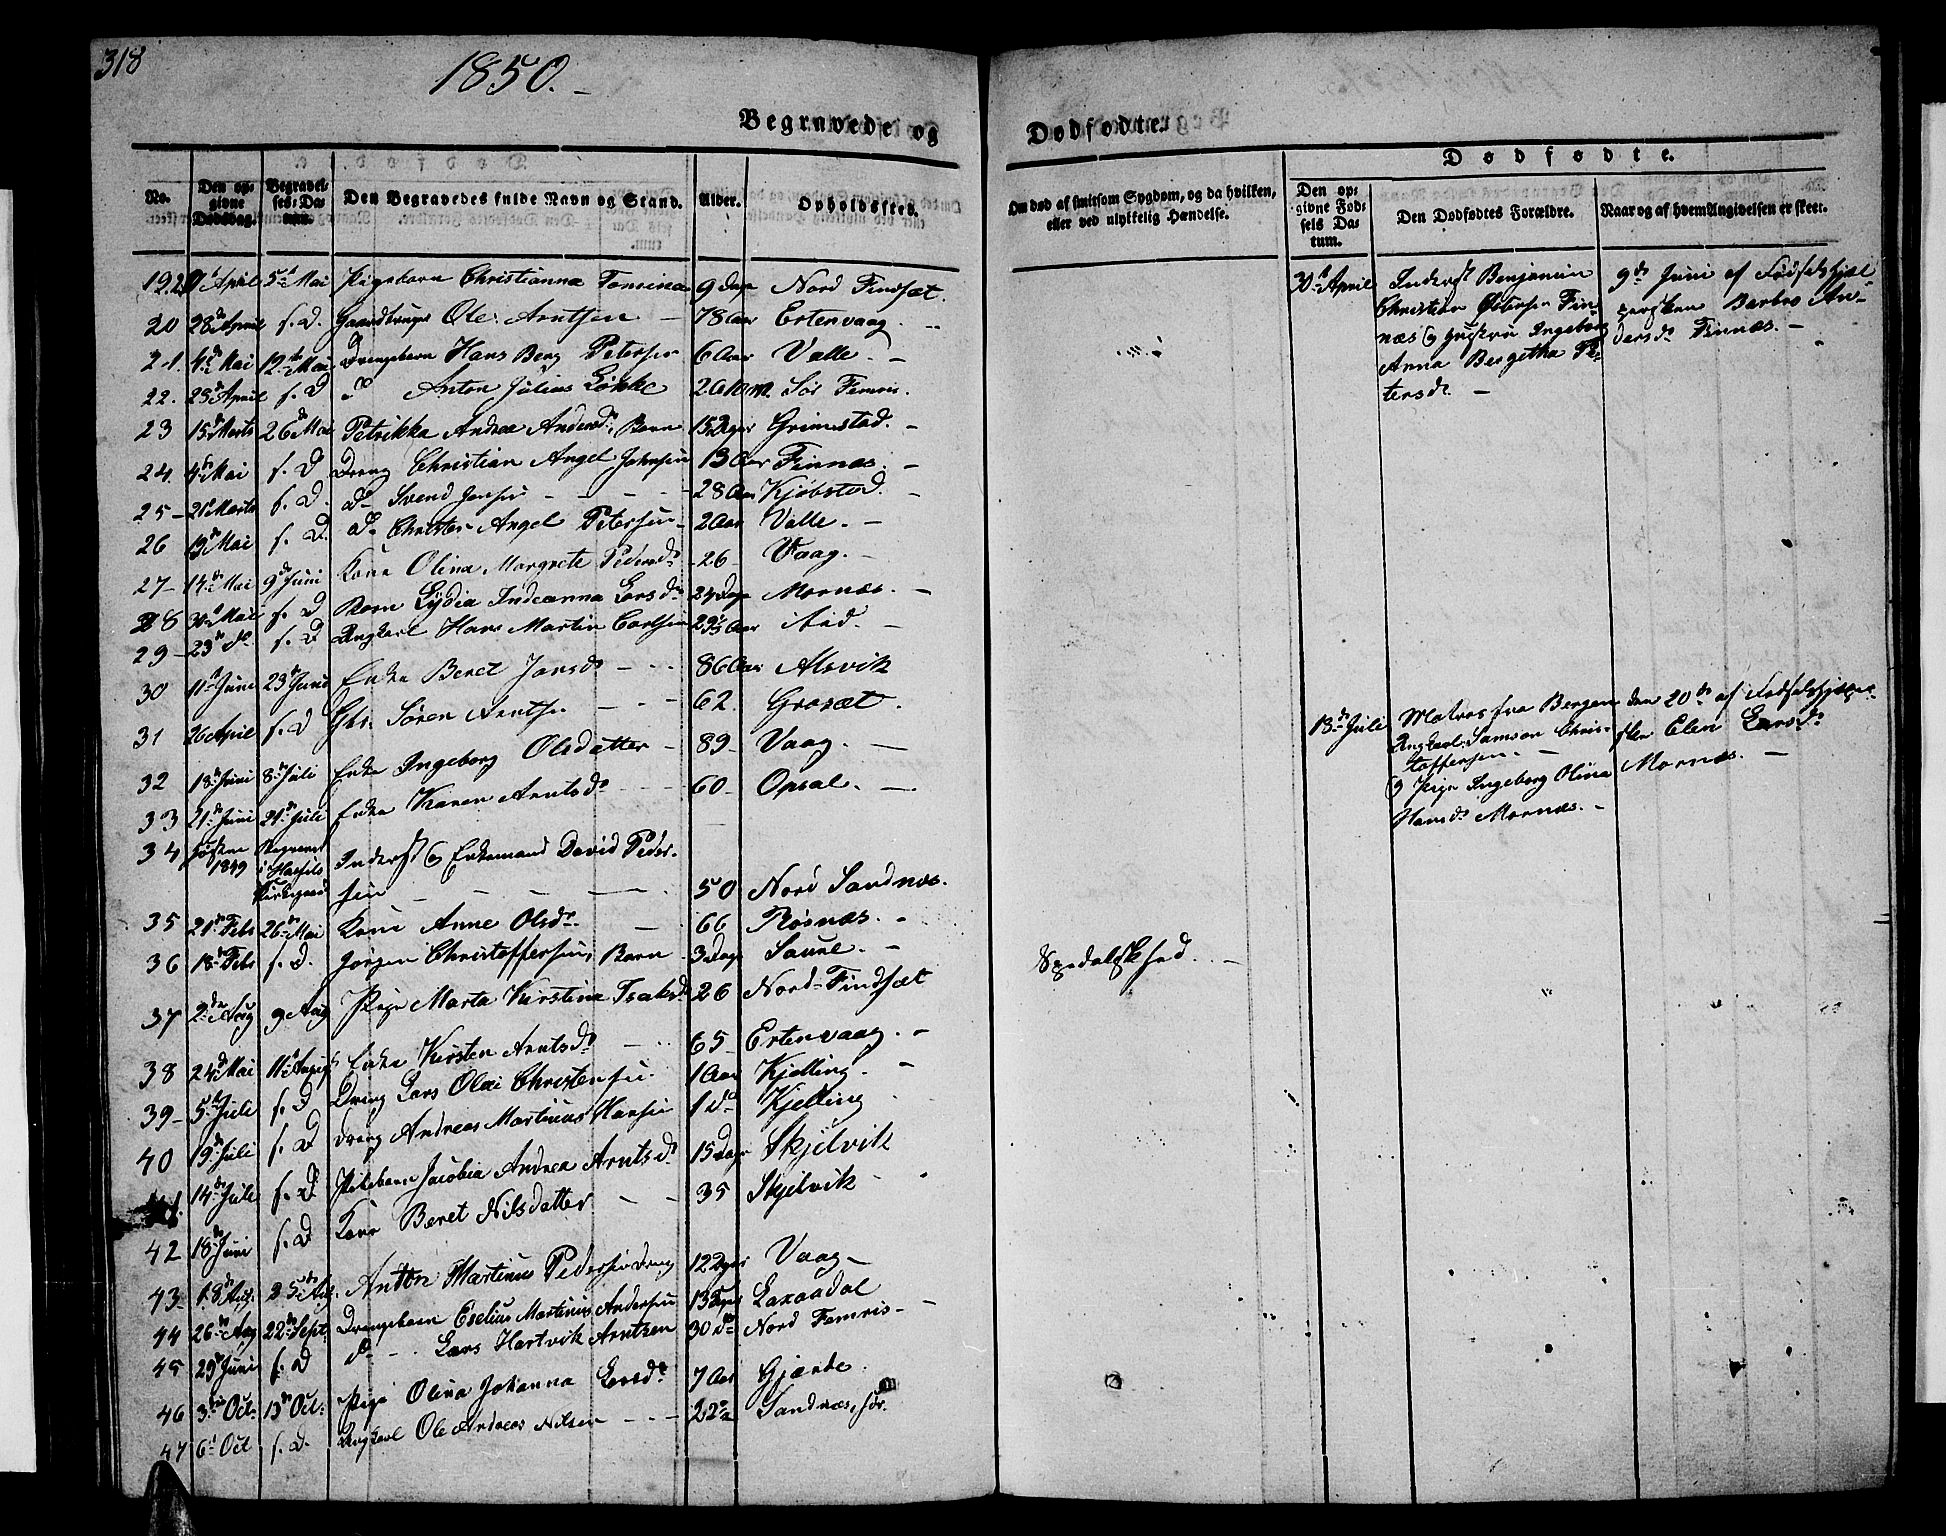 318
1850.
Begravede og
Dødfødte.
No. Den opgivne Dødsdag. Begravelses-Datum. Den Begravedes fulde Navn og Stand. Alder. Opholdssted.
Om død af smitsom Sygdom, og da hvilken, eller ved ulykkelig Hændelse.
Dødfødte.
Den opgivne Fødsels Datum. Den Dødfødtes Forældre. Naar og af hvem Angivelsen er skeet.
19. April 5te Mai Pigebarn Christianna Tomina 9 Dage Nord Findsæt.
20 28de April s. D. Ole Arntsen 78 Aar Ertenvaag.
21. 4de Mai 12te Mai Drengebarn Hans Berg Petersen 6 Aar Valle.
22. 23de April s. D Do Anton Julius Løkke Sør Femris.
23 15de Marts 26de Mai Petrikka Andrea Andersdr, Barn 15 Dager Grimstad.
24. 4de Mai s. D Dreng Christian Angel Johnsen 13 Aar Finnæs.
25 21de Marts s. D. Do Svend Jensen 28 Aar Kjøbstad.
26 13de Mai s. D. Do Christen Angel Petersen 2 Aar Valle.
27 14de Mai 9de Juni Kone Olina Margrete Pedersdr 26 Vaag.
28 30te Mai s. D Barn Lydia Indianna Larsdr 24 Dage Mornæs.
29 23de do s. D Ungkarl Hans Martin Carlsen Aar Aid.
30 11te Juni 23de Juni Enke Beret Jonsdr 86 Aar Alsvik
31 26 April s. D Gbr. Søren Arntsen 62. Grosæt.
32 18de Juni 8de Juli Enke Ingeborg Olsdatter 89 Vaag.
33 21de Juni 21de Juli Enke Karen Arntsdr 60 Opsal.
34 Høsten 1849 Begravet i Hassels Kirkegaard Inderst og Enkemand David Pedersen 50 Nord Sandnæs.
35 21de Febr 26de Mai Kone Anne Olsdr 66 Røsnæs.
36 18de Febr s. D. Jørgen Christoffersen, Barn 3 Dage Saure.
37 2den Aug 9 Aug Pige Marta Kirstina Isaksdr 26 Nord-Findsæt
Spedalskhed.
38 24de Mai 11te August Enke Kirsten Arntsdr 65 Ertenvaag.
39 5te Juli s. D Dreng Lars Olai Christensen 1 Aar Kjelling.
40 19de Juli s. D Dreng Andreas Martinus Hansen 1 do Kjelling
41 14de Juli s. D. Pikebarn Jacobia Andrea Arntsdr 15 Dage Skjelvik
42 18de Juni s. D Kone Beret Nilsdatter 35 Skjelvik
43 18de Aug. 25de Aug. Anton Martinus Pedersen Dreng 12 Dager Vaag
44 26de Aug 22de Sept. Drengebarn Eselius Martinus Andersen 13 Dage Laxaadal
45 29de Juni s. D do Lars Hartvik Arntzen 30 do Nord Femris
46 3die Oct. 13de Oct. Pige Olina Johanna Larsdr 7 Aar Gjærde.
47 6te Oct s. D. Ungkarl Ole Andreas Nilsen Sandnæs, sør.
30te April Inderst Benjamin
Christian Olsen Fin-
næs og Hustru Ingeborg
Anna Bergitha Pe-
tersdr.
9de Juni af Fødselshjæl-
persken Barbro An-
dersdr Finnæs.
13de Juli Matros fra Bergen
Ungkarl Samson Chris-
toffersen
og Pige Ingeborg Olina
Hansdr Mornæs.
den 20de af Fødselshjælper-
sken Elen Larsdr
Mornæs.